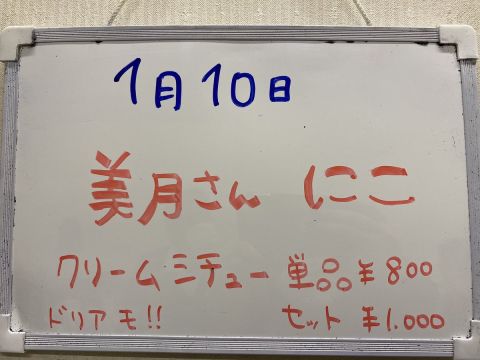 1月10日
美月さん にこ
クリームシチュー 単品 ¥800
ドリアモ!! セット ¥1.000